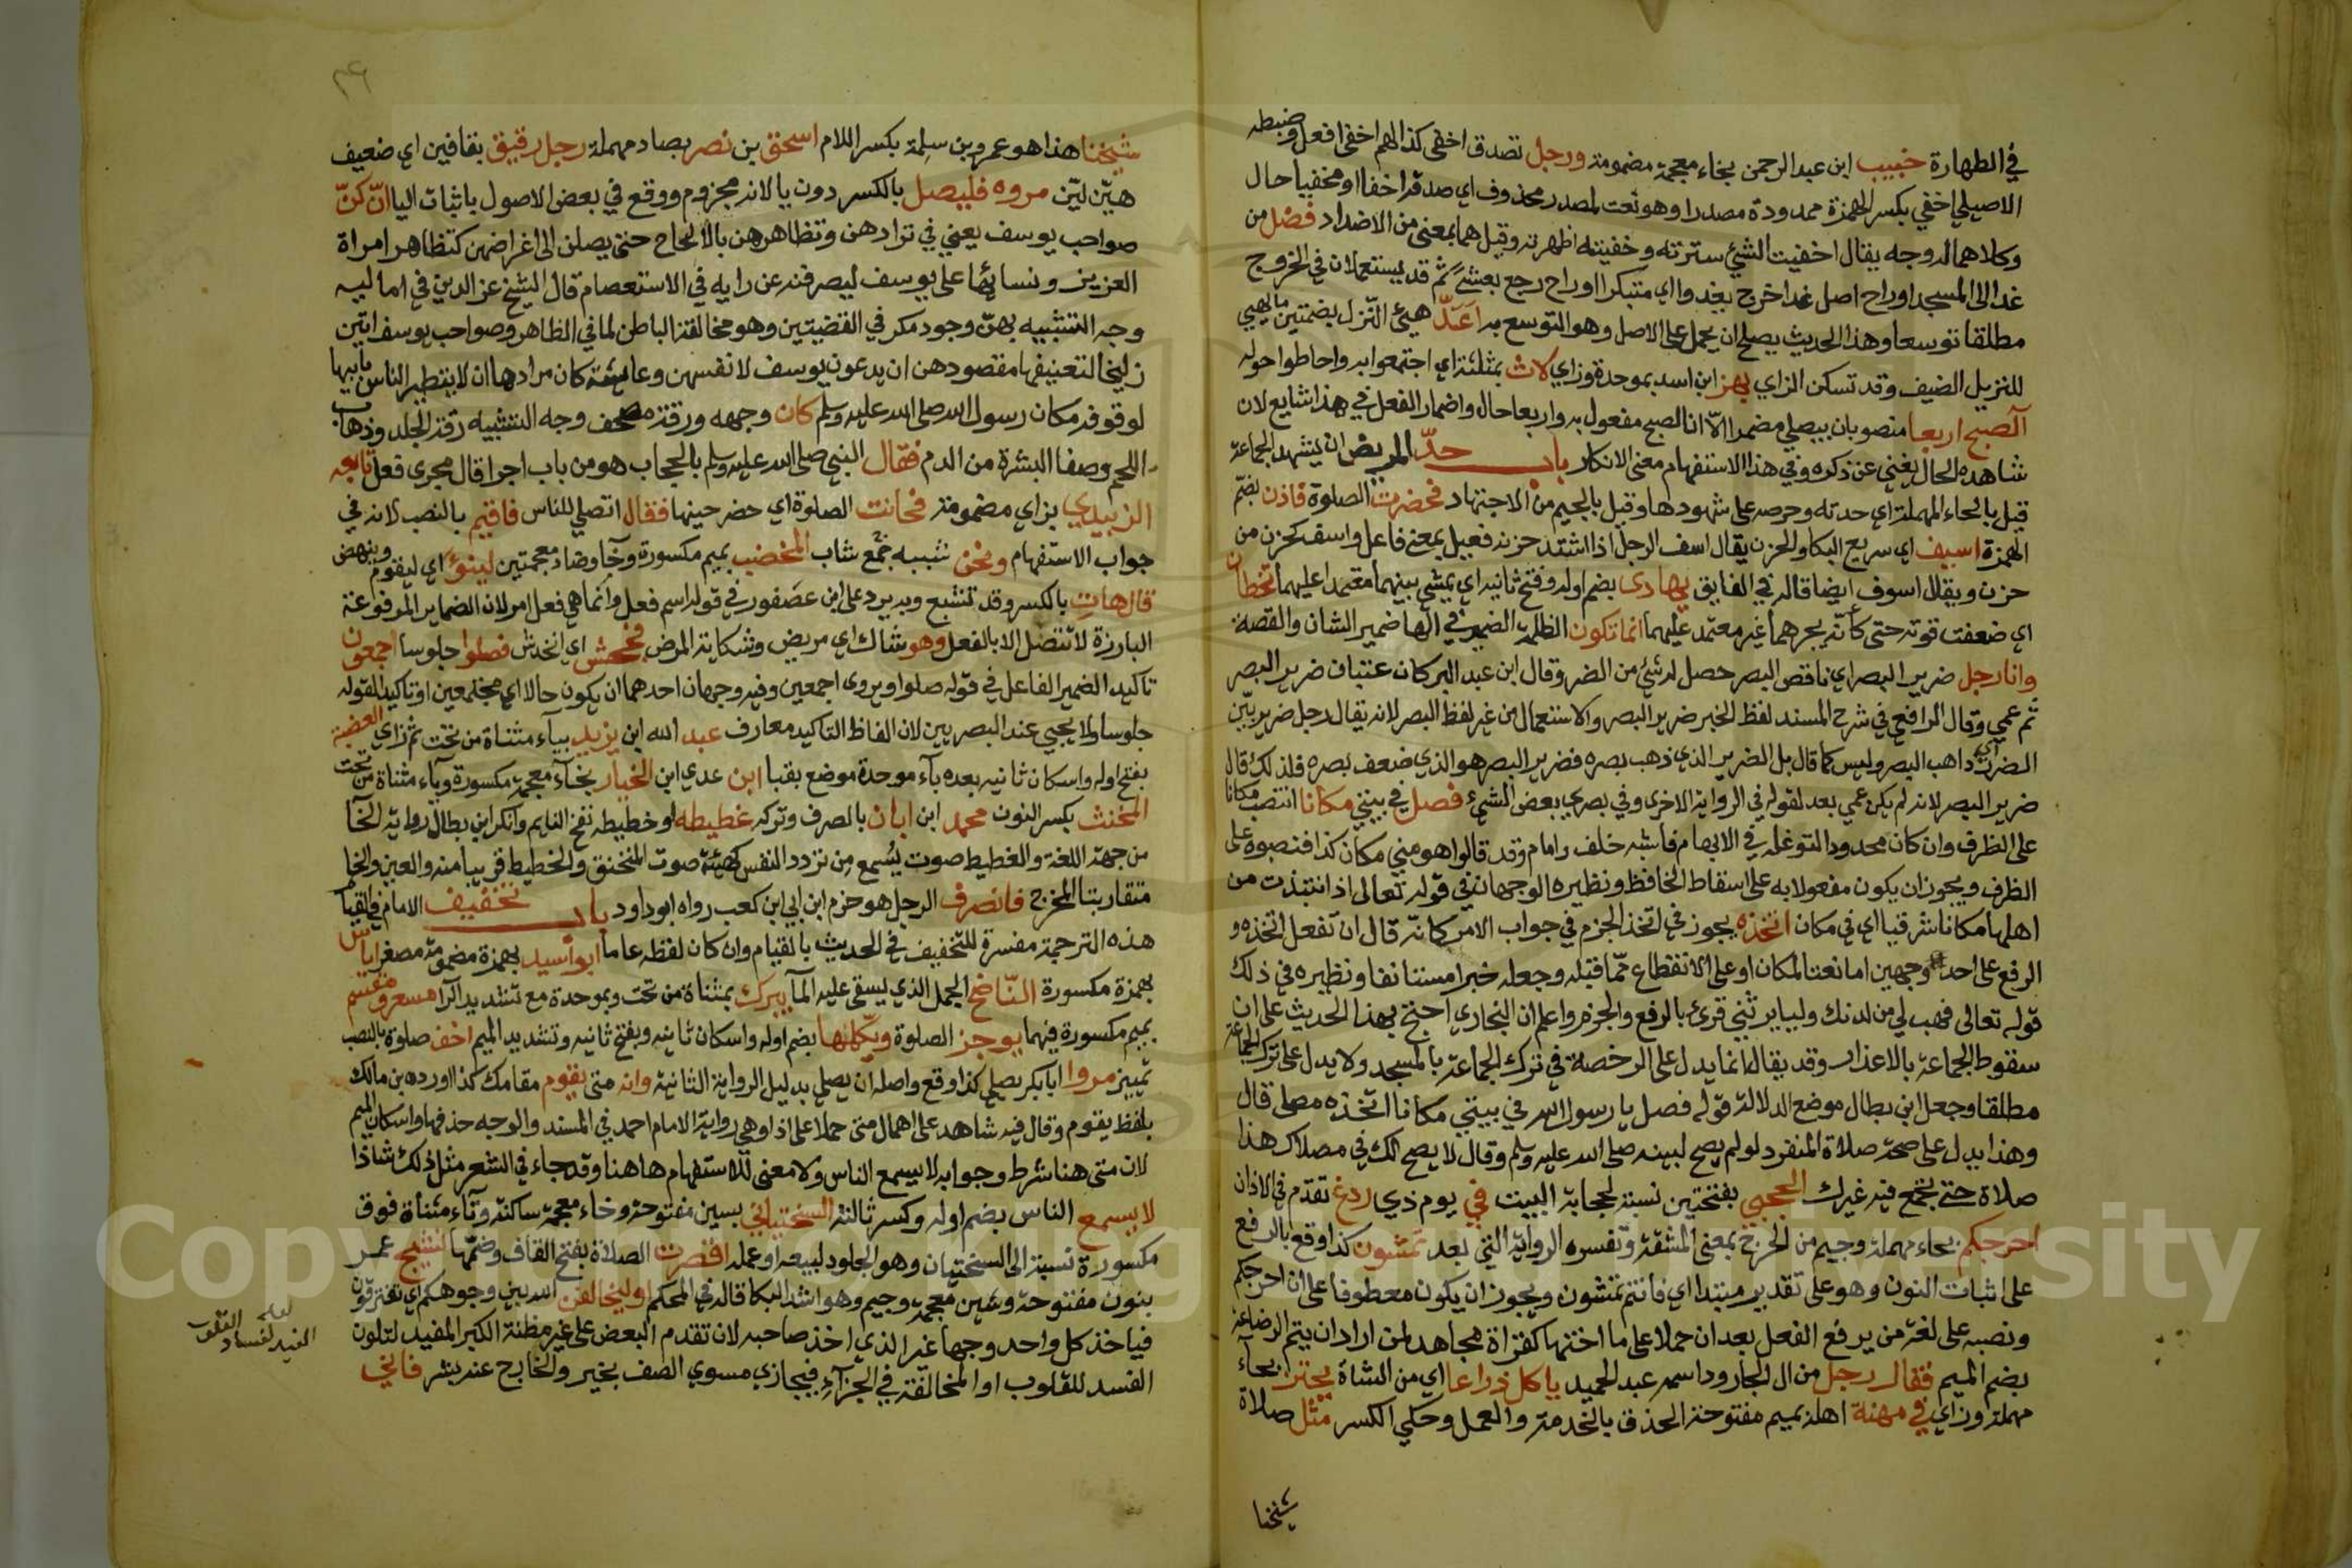 في الطهارة خبيب ابن عبد الرحمن بخاء معجمة مضمومة ورجل تصدق اخفى كذا لهم اخفى افعل وضبطه
الاصيلي اخفي بكسر الهمزة ممدودة مصدرا وهو نعت لمصدر محذوف اي صدقة اخفا او مخفيا حال
وكلاهما له وجه يقال اخفيت الشيئ سترته وخفيته اظهرته وقيل هما بمعنى من الاضداد فضل من
غدا الى المسجد اوراح اصل غدا خرج بغدو اي متبكرا او راح رجع بعشي ثم قد يستعملان في الخروج
مطلقا توسعا وهذا الحديث يصلح ان يحمل على الاصل وهو التوسع به اعدّ هيئ النزل بضمتين ما يهيئ
للنزيل الضيف وقد تسكن الزاي بهز ابن اسد بموحدة وزاي لاث بمثلثة اي اجتمعوا به واحاطوا حوله
آلصبح اربعا منصوبان بيصلي مضمرا الا ان الصبح مفعول به واربعا حال واضمار الفعل في هذا شايع لان
شاهده الحال يغني عن ذكره وفي هذا الاستفهام معنى الانكار باب حدّ المريض ان يشهد الجماعة
قيل بالحاء المهملة اي حدته وحرصه على شهودها وقيل بالجيم من الاجتهاد فحضرت الصلوة فاذن بضم
الهمزة اسيف اي سريع البكا والحزن يقال اسف الرجل اذا اشتد حزنه فعيل بمعنى فاعل واسف كحزن من
حزن ويقال اسوف ايضا قاله في الفايق يهادى بضم اوله وفتح ثانيه اي يمشي بينهما معتمدا عليهما تخطان
اي ضعفت قوته حتى كأنه يجرهما غير معتمد عليهما انها تكون الظلمة الضمير في انها ضمير الشان والقصة
وانا رجل ضرير البصر اي ناقص البصر حصل له شئ من الضر وقال ابن عبد البر كان عتبان ضرير البصر
ثم عمي وقال الرافعي في شرح المسند لفظ الخبر ضرير البصر والاستعمال من غير لفظ البصر لانه يقال رجل ضرير بين
الضرر اي ذاهب البصر وليس كما قال بل الضرير الذي ذهب بصره فضرير البصر هو الذي ضعف بصره فلذلك قال
ضرير البصر لانه لم يكن عمي بعد لقوله في الرواية الاخرى وفي بصري بعض الشيء فصل في بيتي مكانا انتصب مكانا
على الظرف وان كان محدودا لتوغله في الابهام فاشبه خلف وامام وقد قالوا هو مني مكان كذا فنصبوه على
الظرف ويجوز ان يكون مفعولا به على اسقاط الخافظ ونظيره الوجهان في قوله تعالى اذ انتبذت من
اهلها مكانا شرقيا اي في مكان اتخذه يجوز في اتخذ الجزم في جواب الامر كانه قال ان تفعل اتخذه و
الرفع على احد وجهين اما نعتا لمكان او على الانقطاع عما قبله وجعله خبرا مستانفا ونظيره في ذلك
قوله تعالى فهب لي من لدنك وليا يرثني قرئ بالرفع والجزم واعلم ان البخاري احتج بهذا الحديث على ان
سقوط الجماعة بالاعذار وقد يقال انما يدل على الرخصة في ترك الجماعة بالمسجد ولا يدل على ترك الجماعة
مطلقا وجعل ابن بطال موضع الدلالة قوله فصل يا رسول الله في بيتي مكانا اتخذه مصلى قال
وهذا يدل على صحة صلاة المنفرد لو لم يصح لبينه صلى الله عليه وسلم وقال لا يصح لك في مصلاك هذا
صلاة حتى يجتمع فيه غيرك الحجبي بفتحتين نسبة لحجابة البيت في يوم ذي ردغ تقدم في الاذان
احرجكم بحاء مهملة وجيم من الحرج بمعنى المشقة وتفسره الرواية التي بعد تمشون كذا وقع بالرفع
على اثبات النون وهو على تقدير مبتدا اي فانتم تمشون ويجوز ان يكون معطوفا على ان احرجكم
ونصبه على لغة من يرفع الفعل بعد ان حملا على ما اختها كقراة مجاهد لمن اراد ان يتم الرضاعة
بضم الميم فقال رجل من ال الجارود اسمه عبد الحميد ياكل ذراعا اي من الشاة يحتز بحاء
مهملة وزاي في مهنة اهله بميم مفتوحة الحذق بالخدمة والعمل وحكي الكسر مثل صلاة
شيخنا
٣٤
شيخنا هذا هو عمرو بن سلمة بكسر اللام اسحق بن نصر بصاد مهملة رجل رقيق بقافين اي ضعيف
هيّن ليّن مروه فليصل بالكسر دون يا لانه مجزوم ووقع في بعض الاصول باثبات اليا انّ كنّ
صواحب يوسف يعني في ترادهن وتظاهرهن بالالحاح حتى يصلن الى اغراضهن كتظاهر امراة
العزيز ونسائها على يوسف ليصرفنه عن رايه في الاستعصام قال الشيخ عز الدين في اماليه
وجه التشبيه بهن وجود مكر في القضيتين وهو مخالفة الباطن لما في الظاهر وصواحب يوسف اتين
زليخا لتعنيفها مقصودهن ان يدعون يوسف لانفسهن وعايشة كان مرادها ان لا يتطير الناس بابيها
لوقوفه مكان رسول الله صلى الله عليه وسلم كان وجهه ورقة مصحف وجه التشبيه رقة الجلد وذهاب
اللحم وصفا البشرة من الدم فقال النبي صلى الله عليه وسلم بالحجاب هو من باب اجرا قال مجرى فعل تابعه
الزبيدي بزاي مضمومة فحانت الصلوة اي حضر حينها فقال اتصلي للناس فاقيم بالنصب لانه في
جواب الاستفهام ونحن شببه جمع شاب المخضب بميم مكسورة وخا وضاد معجمتين لينوء اي ليقوم وينهض
قال هات بالكسر وقد تشبع وبه يرد على ابن عصفور في قوله اسم فعل وانما هي فعل امر لان الضماير المرفوعة
البارزة لا تتصل الا بالفعل وهو شاك اي مريض وشكاية المرض فجحش اي انخدش فصلوا جلوسا اجمعون
تاكيد الضمير الفاعل في قوله صلوا ويروى اجمعين وفيه وجهان احدهما ان يكون حالا اي مجتمعين او تاكيدا لقوله
جلوسا ولا يجيئ عند البصريين لان الفاظ التاكيد معارف عبد الله ابن يزيد بياء مثناة من تحت ثم زاي العصبة
بفتح اوله واسكان ثانيه بعده باء موحدة موضع بقبا ابن عدي ابن الخيار بخاء معجمة مكسورة وياء مثناة من تحت
المخنث بكسر النون محمد ابن ابان بالصرف وتركه غطيطه او خطيطه نفخ النايم وانكر ابن بطال رواية الخا
من جهة اللغة والغطيط صوت يُسمع من تردد النفس كهيئة صوت المختنق والخطيط قريبا منه والعين والخا
متقاربتا المخرج فانصرف الرجل هو حزم ابن ابي ابن كعب رواه ابو داود باب تخفيف الامام في القيام
هذه الترجمة مفسرة للتخفيف في الحديث بالقيام وان كان لفظه عاما ابو أسيد بهمزة مضمومة مصغر اياس
بهمزة مكسورة النّاضح الجمل الذي يسقى عليه الما يبرك بمثناة من تحت وبموحدة مع تشديد الرا مسعر ومقسم
بميم مكسورة فيهما يوجز الصلوة ويكملها بضم اوله واسكان ثانيه وبفتح ثانيه وتشديد الميم اخف صلوة بالنصب
تمييز مروا ابا بكر يصلي كذا وقع واصله ان يصلي بدليل الرواية الثانية وانه متى يقوم مقامك كذا اورده بن مالك
بلفظ يقوم وقال فيه شاهد على اهمال متى حملا على اذا وهي رواية الامام احمد في المسند والوجه حذفها واسكان الميم
لان متى هنا شرط وجوابه لا يسمع الناس ولا معنى للاستفهام هاهنا وقد جاء في الشعر مثل ذلك شاذا
لا يسمع الناس بضم اوله وكسر ثالثه السختياني بسين مفتوحة وخاء معجمة ساكنة وتاء مثناة فوق
مكسورة نسبة الى السختيان وهو الجلود لبيعه او عمله اقصرت الصلاة بفتح القاف وضمها نشيج عمر
بنون مفتوحة وشين معجمة وجيم وهو اشد البكا قاله في المحكم او ليخالفن الله بين وجوهكم اي تفترقون
فياخذ كل واحد وجها غير الذي اخذ صاحبه لان تقدم البعض على غير مظنة الكبر المفيد لتلون
الفسد للقلوب او المخالفة في الجزاء فيجازي مسوي الصف بخير والخارج عنه بشر فاني
لعله
القلوب